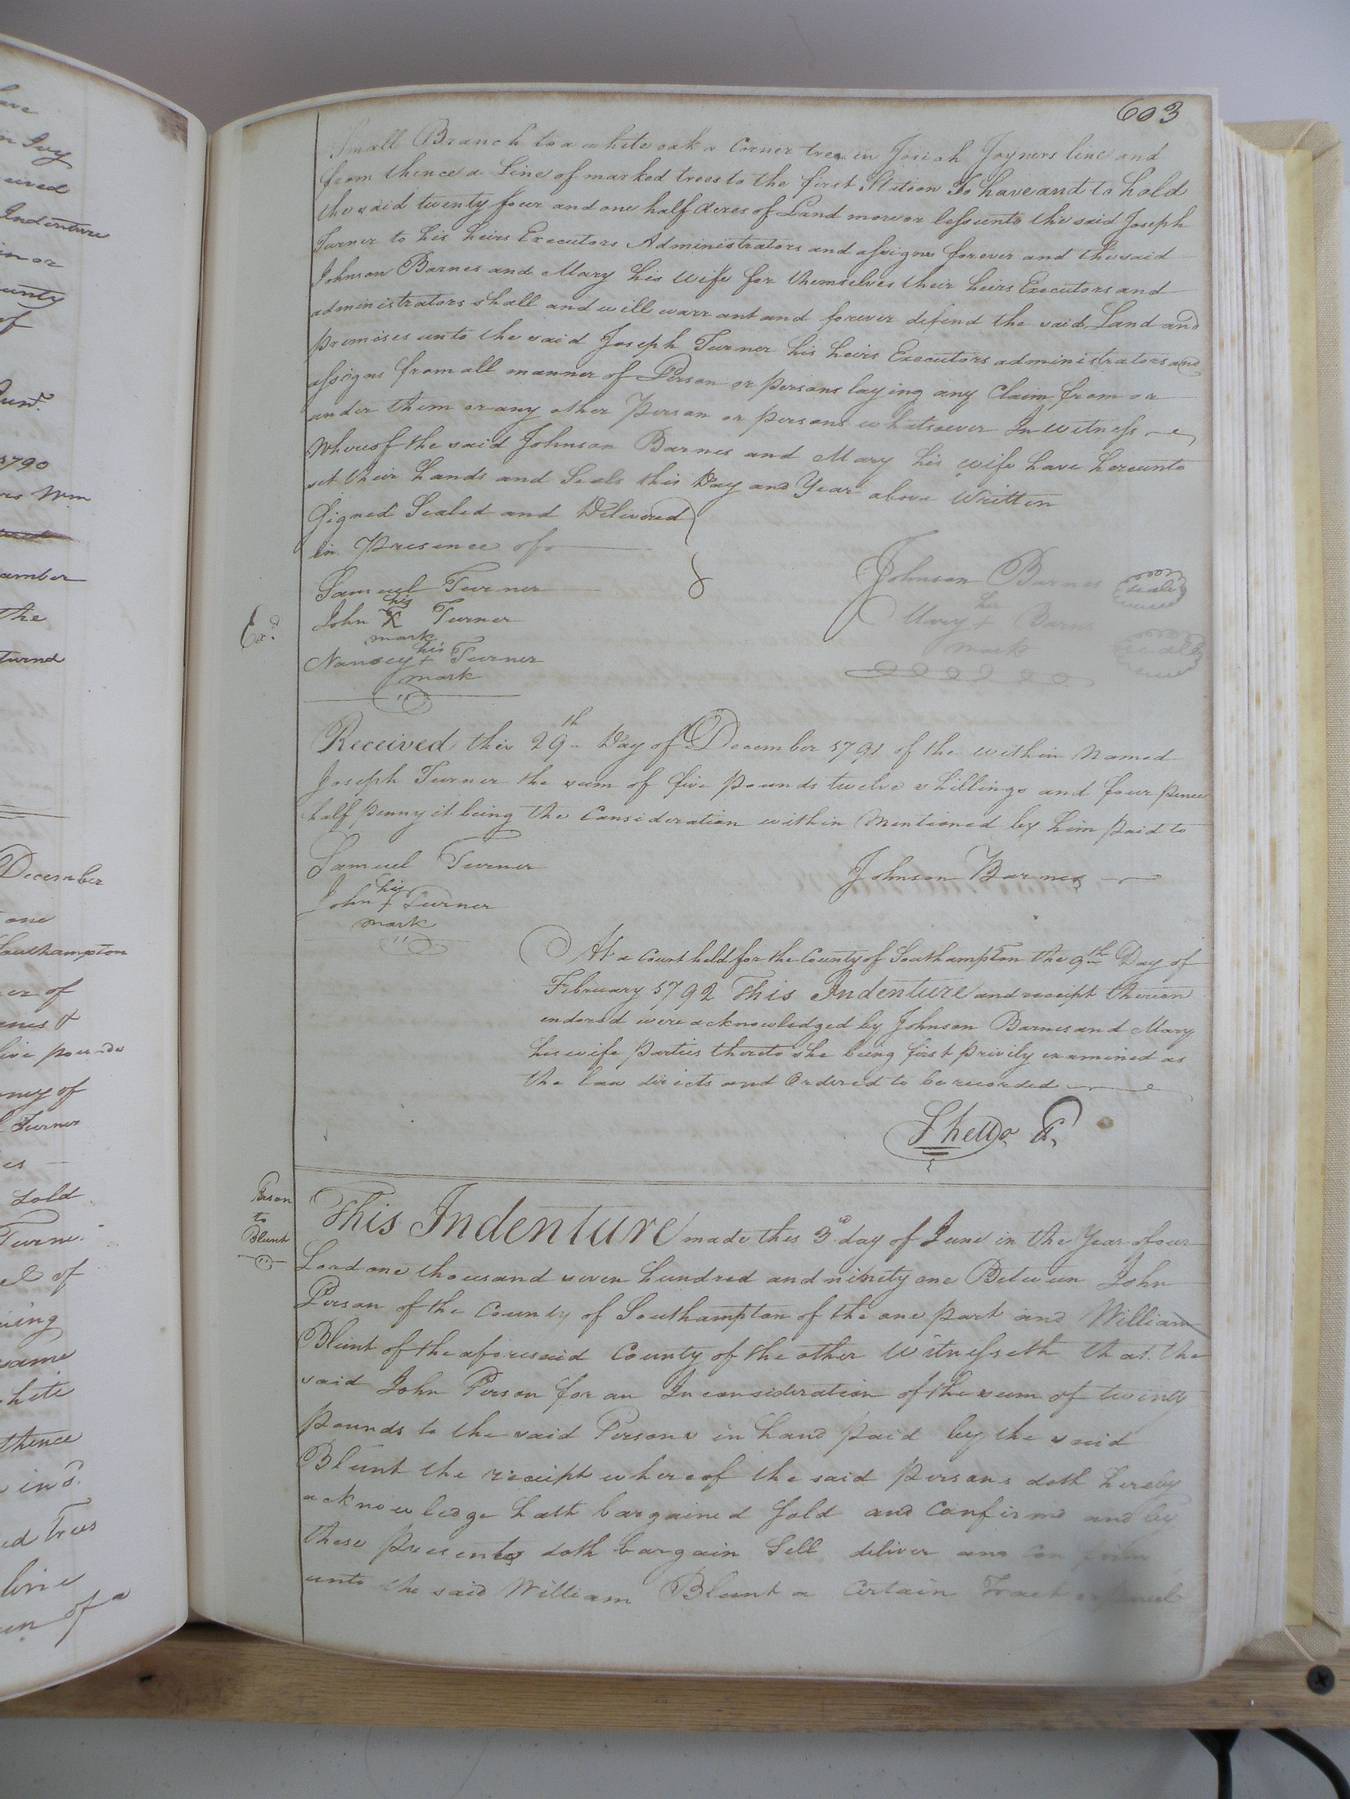 603
Small Branch to a white oak a Corner tree in Josiah Joyners line and
from thence a Line of marked trees to the first Station To have and to hold
the said twenty four and one half Acres of Land more or less unto the said Joseph
Turner to his heirs Executors Administrators and assigns forever and the said
Johnson Barnes and Mary his wife for themselves their heirs Executors and
administrators shall and will warrant and forever defend the said Land and
premises unto the said Joseph Turner his heirs Executors administrators and
assigns from all manner of Person or persons laying any Claim from or
under them or any other Person or persons whatsoever In witness
whereof the said Johnson Barnes and Mary his wife have hereunto
set their hands and Seals this Day and Year above Written
Signed Sealed and Delivered
in Presence of
Samuel Turner
John his X mark Turner
Nancey his + mark Turner
Exd
Johnson Barnes seal
Mary her + mark Barns seal
Received this 29th Day of December 1791 of the within Named
Joseph Turner the sum of five pounds twelve shillings and four pence
half penny it being the Consideration within Mentioned by him paid to
Samuel Turner
John his + mark Turner
Johnson Barnes
At a Court held for the County of Southampton the 9th Day of
February 1792 This Indenture and receipt thereon
endorsd were acknowledged by Johnson Barnes and Mary
his wife parties thereto she being first privily examined as
the law directs and Ordered to be recorded
Person
to
Blunt
This Indenture made this 3d day of June in the Year of our
Lord one thousand seven hundred and ninety one Between John
Person of the County of Southampton of the one part and William
Blunt of the aforesaid County of the other Witnesseth that the
said John Person for an In consideration of the sum of twenty
pounds to the said Persons in hand paid by the said
Blunt the receipt whereof the said persons doth hereby
acknowledge hath bargained Sold and Confirmd and by
these presents doth bargain Sell deliver and confirm
unto the said William Blunt a Certain Tract or parcel
Indenture
unty
of
1790
ember
the
turnd
December
one
Southampton
er of
five pounds
Turner
sold
same
white
thence
in sd.
ed Trees
line
of a